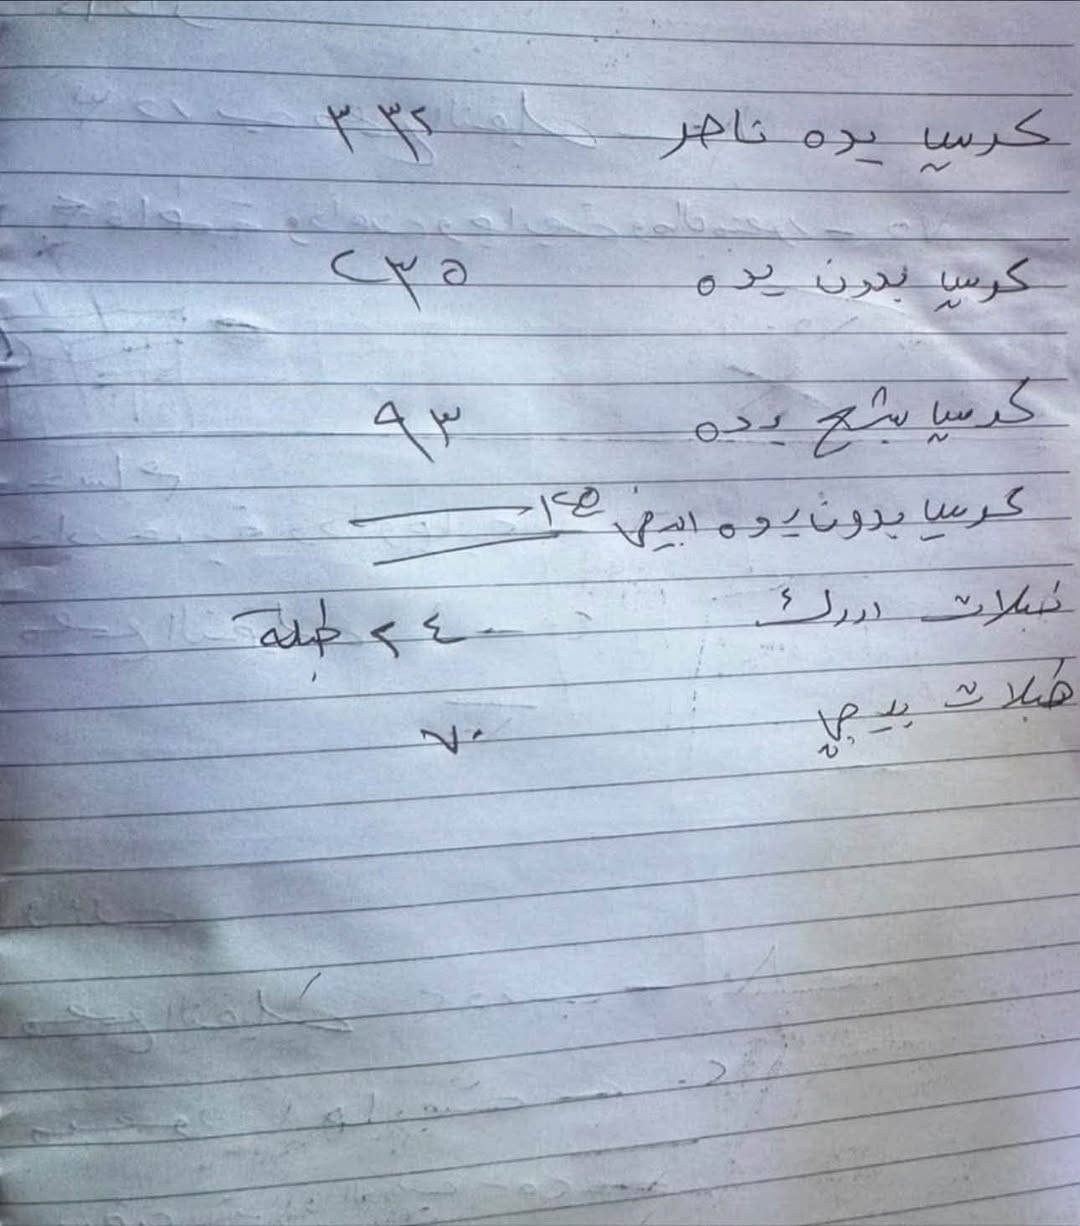 كرسيا يده تاجر ٣٣٢
كرسيا بدون يده ٢٣٥
كرسيا بيج يده ٩٣
كرسيا بدون يده ابيض ١٢٥
طبلات ازرك ٢٤ طبلة
طبلات بيج ٧٠